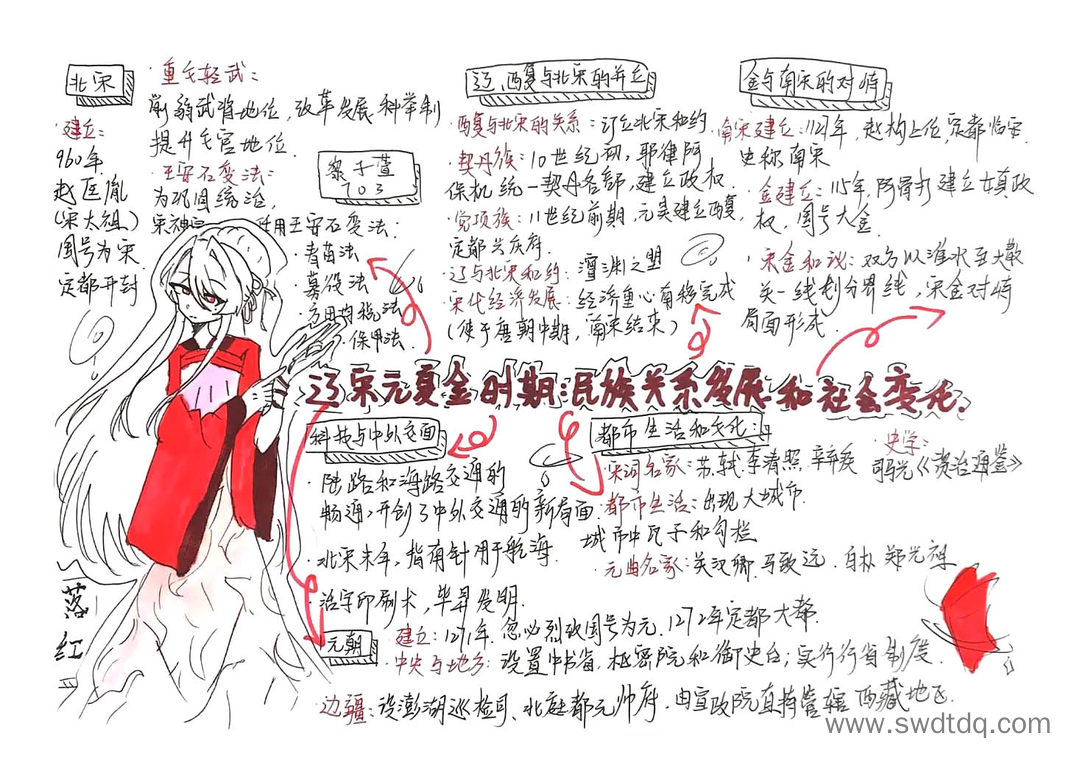 北宋
·建立:
960年
赵匡胤
(宋太祖)
国号为宋
定都开封
·重文轻武:
削弱武将地位,改革发展科举制
提升文官地位.
·王安石变法:
为巩固统治,
宋神宗 用王安石变法:
·青苗法
·募役法
·方田均税法
·保甲法.
黎子萱
703
辽、西夏与北宋的并立
·西夏与北宋的关系:订立北宋和约
·契丹族:10世纪初,耶律阿
保机统一契丹各部,建立政权.
·党项族:11世纪前期,元昊建立西夏,
定都兴庆府.
·辽与北宋和约:澶渊之盟
·宋代经济发展:经济重心南移完成
(使于唐朝中期,南宋结束)
金与南宋的对峙
南宋建立:1127年,赵构上位,定都临安.
史称南宋
·金建立:115年,阿骨打建立女真政
权,国号大金.
·宋金和议:双方以淮水至大散
关一线划分界线,宋金对峙
局面形成.
辽宋元夏金时期:民族关系发展和社会变化.
科技与中外交通
·陆路和海路交通的
畅通,开创了中外交通的新局面.
·北宋末年,指南针用于航海.
·活字印刷术,毕昇发明.
都市生活和文化:
·宋词名家:苏轼.李清照.辛弃疾
·都市生活:出现大城市.
城市中瓦子和勾栏
·元曲名家:关汉卿.马致远.白朴.郑光祖
·史学:
司马光《资治通鉴》
元朝
·建立:1271年.忽必烈改国号为元.1272年定都大都.
·中央与地方:设置中书省.枢密院和御史台;实行行省制度.
·边疆:设澎湖巡检司、北庭都元帅府.由宣政院直接管辖西藏地区.
落
红
www.swdtdq.com